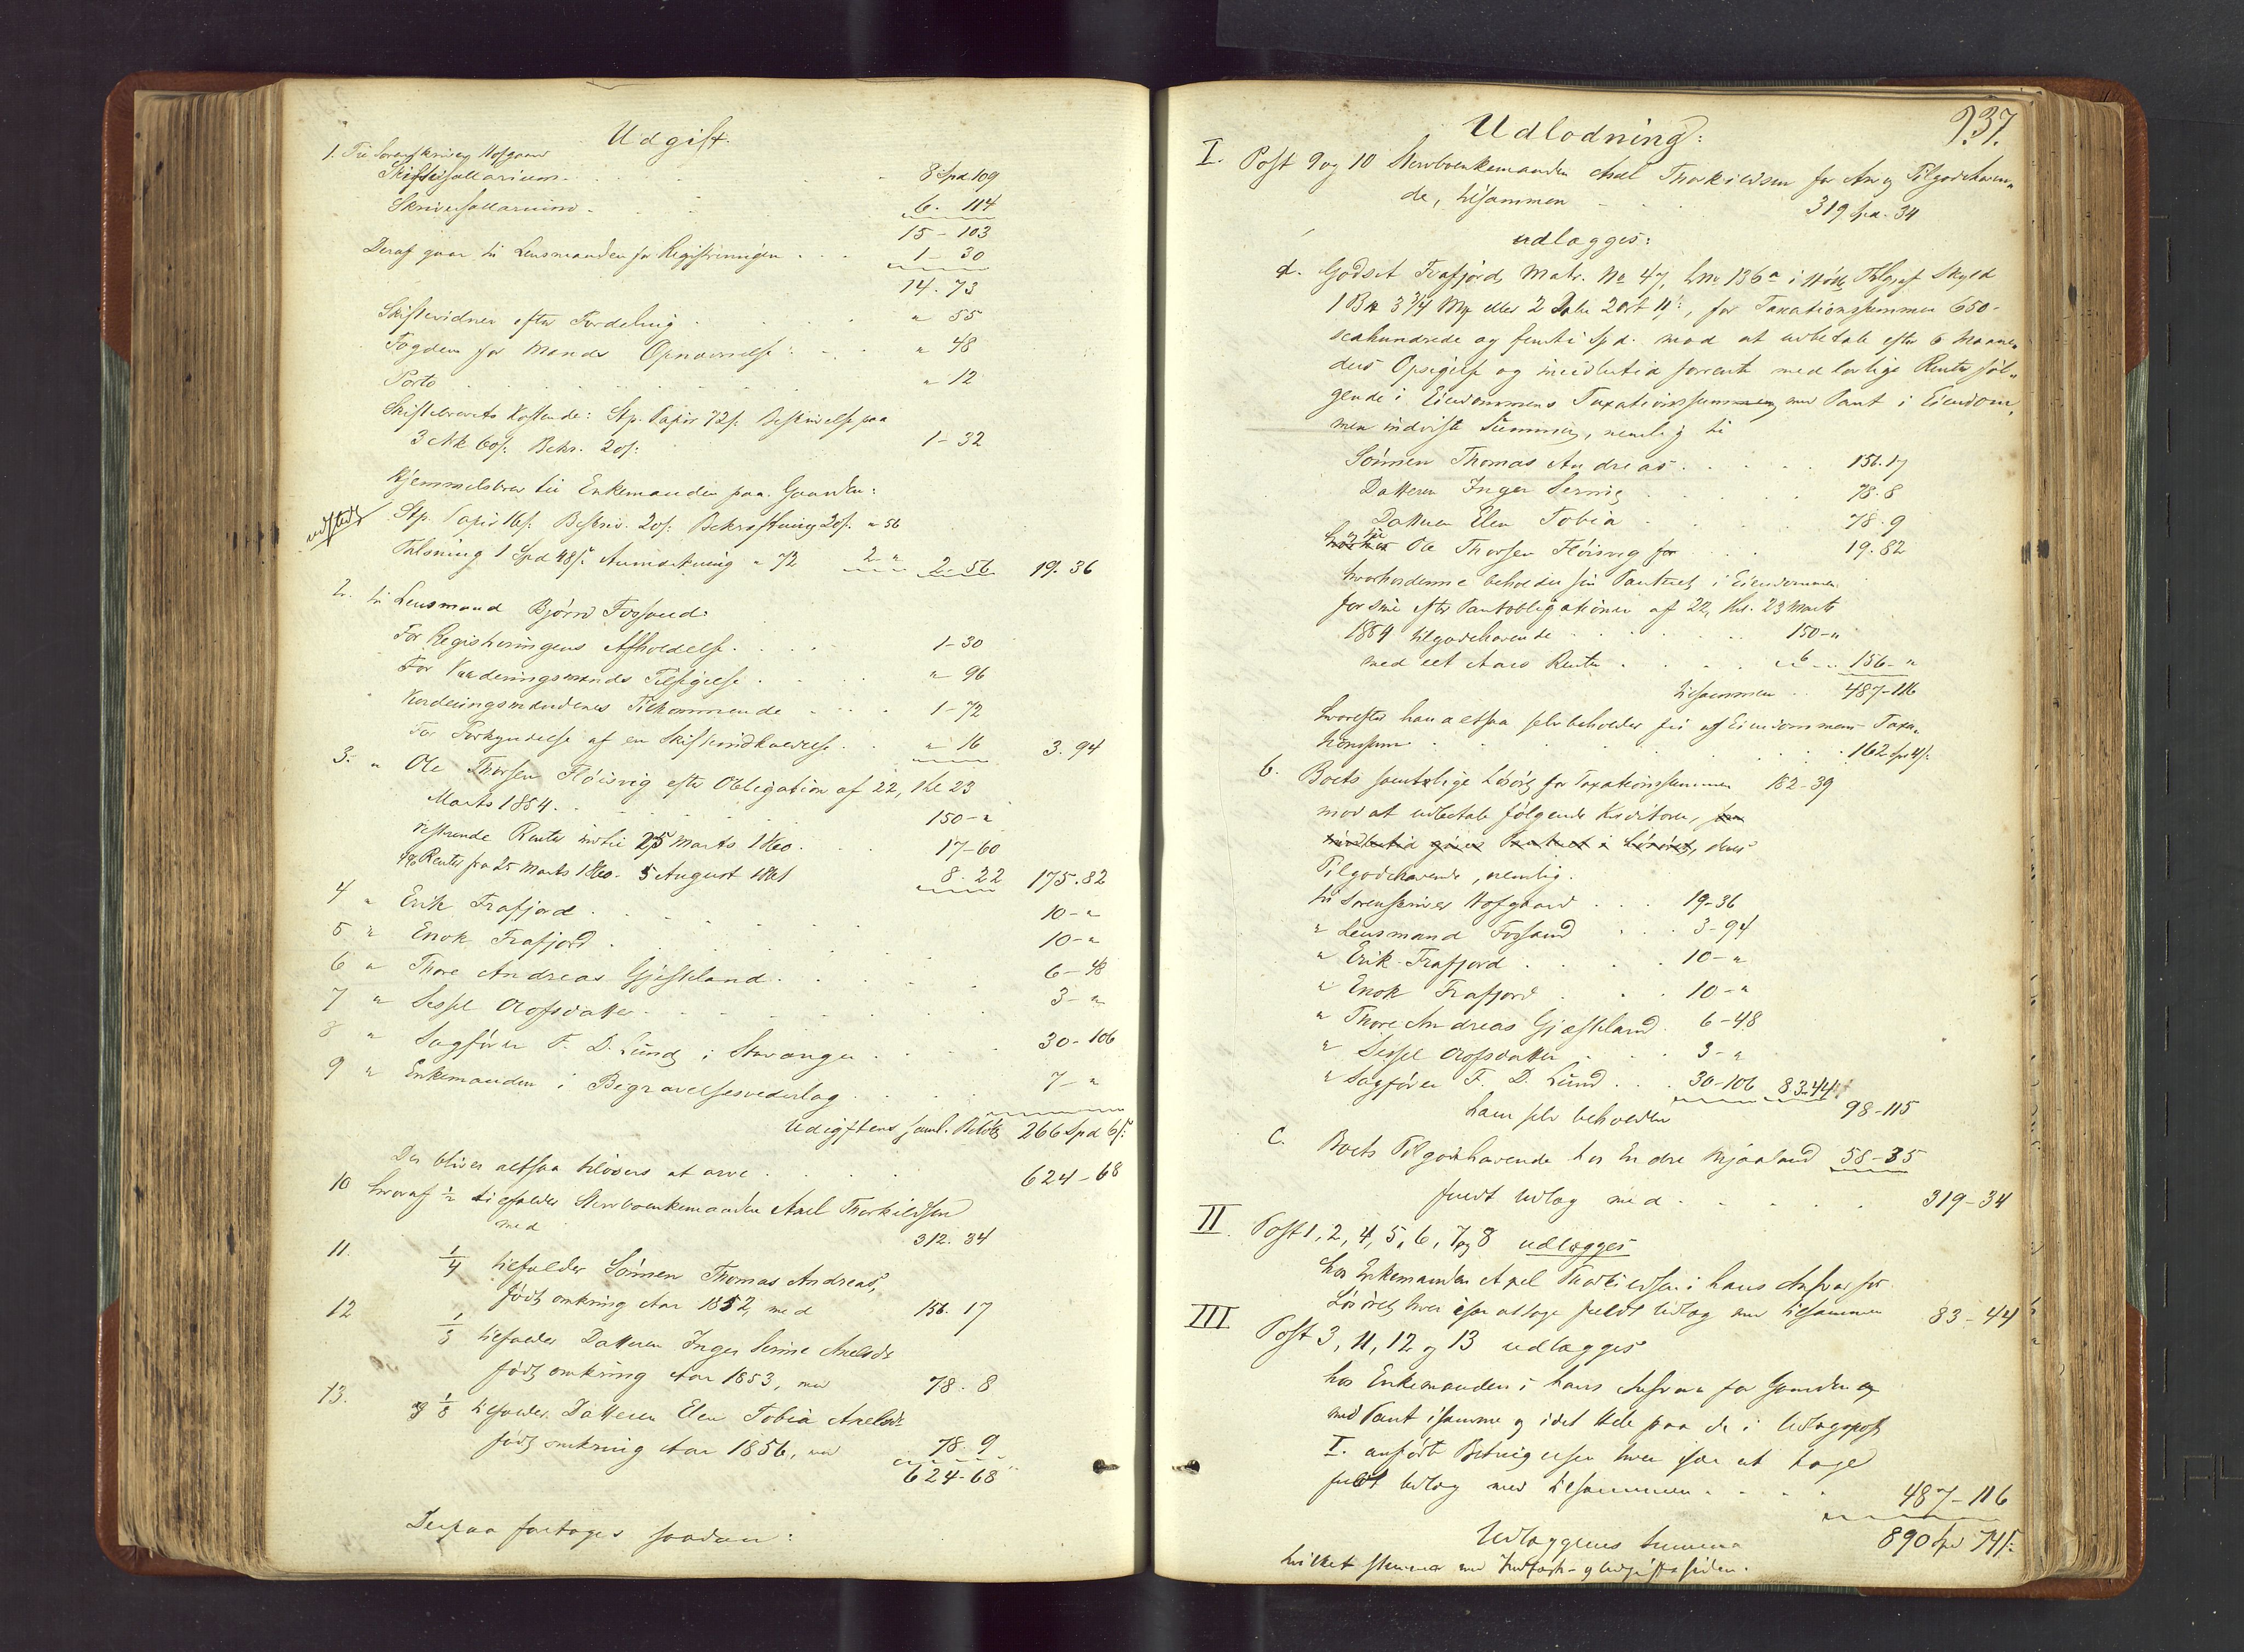 Udgift.
1. Til Sorenskriver Hofgaard
Skiftesallarium . . . 8 Spd 109
Skriversallarium . . 6. 114
15 - 103
Deraf gaar til Lensmanden for Registreringen . . . 1 - 30
14. 73
Skiftevidner efter Fordeling . . . " 55
Fogden for Mænds Opnævnelse . . . " 48
Porto . . . " 12
Skiftebrevets Kostende: Stp. Papir 72 s: Beskrivelse paa
3 Ark 60 s: Bekr. 20 s: 1 - 32
Hjemmelsbrev til Enkemanden paa Gaarden:
udstedt
Stp. Papir 16 s: Beskriv. 20 s: Bekræftning 20 s: " 56
Thlæsning 1 Spd 48 s: Anmærkning " 72 2 " 2 - 56 19. 36
2. til Lensmand Bjørn Fossand:
For Registreringens Afholdelse . . . 1 - 30
For Vurderingsmænds Tilsigelse . . . " 96
Vurderingsmændenes Tilkommende . . . 1 - 72
For Forkyndelse af en Skifteindkaldelse . . " 16 3. 94
3. " Ole Thorsen Fløisvig efter Obligation af 22, thl 23
Marts 1854 . . 150 - "
resterende Renter indtil 25 Marts 1860 . . . 17 - 60
4% Renter fra 25 Marts 1860 - 5 August 1861 8. 22 175. 82
4 " Erik Frafjord . . . 10 - "
5 " Enok Frafjord . . . 10 - "
6 " Thore Andreas Gjæsteland . . . 6 - 48
7 " Sissel Olofsdatter . . . 3 - "
8 " Sagfører F. D. Lund i Stavanger . . . 30 - 106
9 " Enkemanden i Begravelsesvederlag . . . 7 - "
Udgiftens saml. Beløb 266 Spd 6 s:
Der bliver altsaa tilovers at arve . . . 624 - 68
10 hvoraf 1/2 tilfalder Stervboenkemanden Axel Thorkildsen
med 312. 34
11. 1/4 tilfalder Sønnen Thomas Andreas,
født omkring Aar 1852, med 156. 17
12 1/8 tilfalder Datteren Inger Serine Axelsdr
født omkring Aar 1853, med 78. 8
13. og 1/8 tilfalder Datteren Elen Tobia Axelsdr
født omkring Aar 1856, med 78. 9
624 - 68
Derpaa foretoges saadan:
937.
Udlodning:
I. Post 9 og 10 Stervboenkemanden Axel Thorkildsen for Arv og Tilgodehaven-
de, tilsammen . . 319 Spd. 34
udlægges:
a. Godset Frafjord, Matr. No 47, Lno 136a i Høle Thlg, af Skyld
1 Bpd 3 3/4 Mrk eller 2 Dlr 2 Ort 11 s:, for Taxationssummen 650 -
sexhundrede og femti Spd. mod at udbetale efter 6 Maane-
ders Opsigelse og imidlertid forrente med lovlige Renter føl-
gende i Eiendommens Taxationssum med Pant i Eiendom-
men indviste Summer, nemlig til
Sønnen Thomas Andreas . . . 156. 17
Datteren Inger Serine . . . 78. 8
Datteren Elen Tobia . . . 78. 9
og til Ole Thorsen Fløisvig for . . . 19. 82
hvorhos denne beholder sin Panteret i Eiendommen
for sine efter Pantobligationen af 22, thl. 23 Marts
1854 tilgodehavende . . . 150 - "
med eet Aars Renter . . . " 6 " 156 - "
tilsammen . . 487 - 116
hvorefter han altsaa selv beholder fri af Eiendommens Taxa-
tionssum . . . 162 Spd 4 s:
b. Boets samtlige Løsøre for Taxationssummen 182 - 39
mod at udbetale følgende Kreditorer, som
imidlertid gives Panteret i Løsøret, deres
Tilgodehavende, nemlig:
til Sorenskriver Hofgaard . . . 19 - 36
" Lensmand Fossand . . . 3 - 94
" Erik Frafjord . . . 10 - "
" Enok Frafjord . . . 10 - "
" Thore Andreas Gjæsteland . 6 - 48
" Sissel Olofsdatter . . . 3 - "
" Sagfører F. D. Lund . . . 30 - 106 83 - 44
ham selv beholden 98 - 115
c. Boets Tilgodehavende hos Endre Mjaaland 58 - 35
fuldt Udlæg med . . . 319 - 34
II. Post 1, 2, 4, 5, 6, 7 og 8 udlægges
hos Enkemanden Axel Thorkildsen i hans Ansvar for
Løsøret, hver især at tage fuldt Udlæg med tilsammen 83 - 44
III Post 3, 11, 12 og 13 udlægges
hos Enkemanden i hans Ansvar for Gaarden og
med Pant i samme og i det Hele paa de i Udlægspost
I. anførte Betingelser hver især at tage
fuldt Udlæg med tilsammen . . . 487 - 116
Udlæggenes Summa 890 Spd 74 s:
hvilket stemmer med Indtægts- og Udgiftssiden.